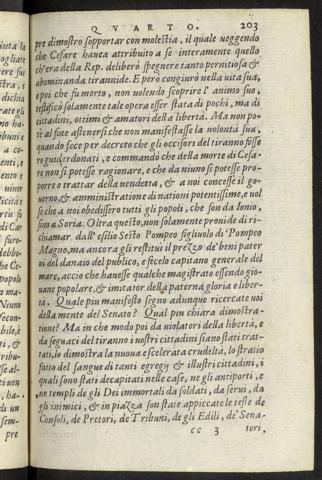 QVARTO. 203
pre dimostro sopportar con molestia, il quale ueggendo
che Cesare hauea attribuito a se interamente quello
ch'era della Rep. deliberò spegnere tanto pernitiosa &
abominanda tirannide. E però congiurò nella uita sua,
e poi che fu morto, non uolendo scoprire l' animo suo,
testificò solamente tale opera esser stata di pochi, ma di
cittadini, ottimi & amatori della libertà. Ma non po-
tè al fine astenersi che non manifestasse la uolontà sua,
quando fece per decreto che gli occisori del tiranno fosse
ro guiderdonati, e commandò che della morte di Cesa-
re non si potesse ragionare, e che da niuno si potesse pro-
porre o trattar della uendetta, & a noi concesse il go-
uerno, & amministratione di nationi potentissime, e uol
se che a noi obedissero tutti gli popoli, che son da Ionio,
sino a Soria. Oltra questo, non solamente prouide di ri-
chiamar dall' esilio Sesto Pompeo figliuolo di Pompeo
Magno, ma ancora gli restituì il prezzo de' beni pater
ni del danaio del publico, e fecelo capitano generale del
mare, accio che hauesse qualche magistrato essendo gio-
uane popolare, & imitator della paterna gloria e liber-
tà. Quale piu manifesto segno adunque ricercate uoi
della mente del Senato? Qual piu chiara dimostra-
tione? Ma in che modo poi da uiolatori della libertà, e
da seguaci del tiranno i uostri cittadini siano stati trat-
tati, lo dimostra la nuoua e scelerata crudeltà, lo stratio
fatto del sangue di tanti egregij & illustri cittadini, i
quali sono stati decapitati nelle case, ne gli antiporti, e
ne tempij de gli Dei immortali da soldati, da serui, da
gli inimici, & in piazza son state appiccate le teste de
Consoli, de Pretori, de Tribuni, de gli Edili, de' Sena-
CC 3 tori,